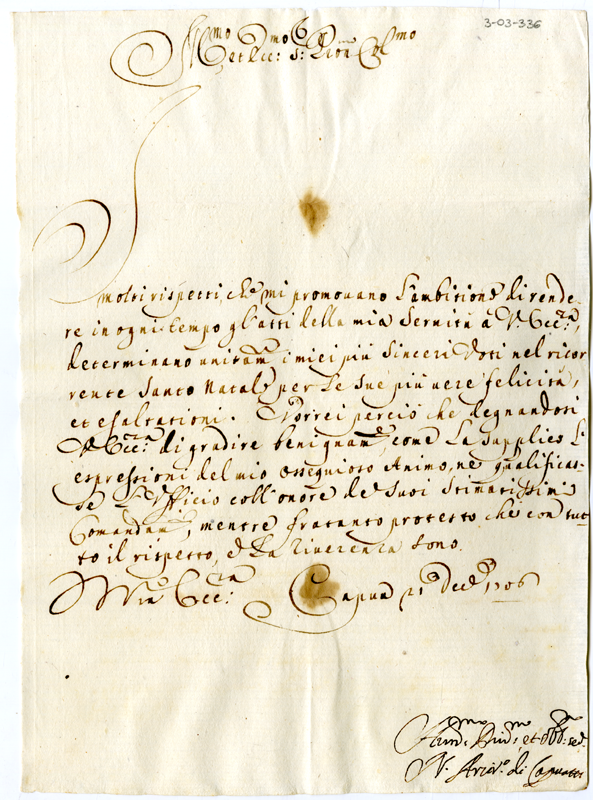 3-03-336
Ill.mo et Ecc:mo S: Pron Col.mo
I molti rispetti, che mi promouano l'ambitione di rende-
re in ogni tempo gl'atti della mia Seruitù à V. Ecc:za,
determinano unitam.e i miei più Sinceri Voti nel ricor-
rente Santo Natale per le sue più uere felicità,
et esaltationi. Vorrei perciò che degnandosi
V. Ecc:za di gradire benignam.e, come La supplico Li
espressioni del mio ossequioso Animo, ne qualificas-
se L'Vfficio coll'onore de Suoi Stimatissimi
Comandam.ti, mentre fratanto protesto che con tut-
to il rispetto, e La riuerenza sono.
Di Vra Ecc:za Capua 21 Dec.e 1706
Hum.mo Diu.mo et obb:
N. Arciu.o di Capua